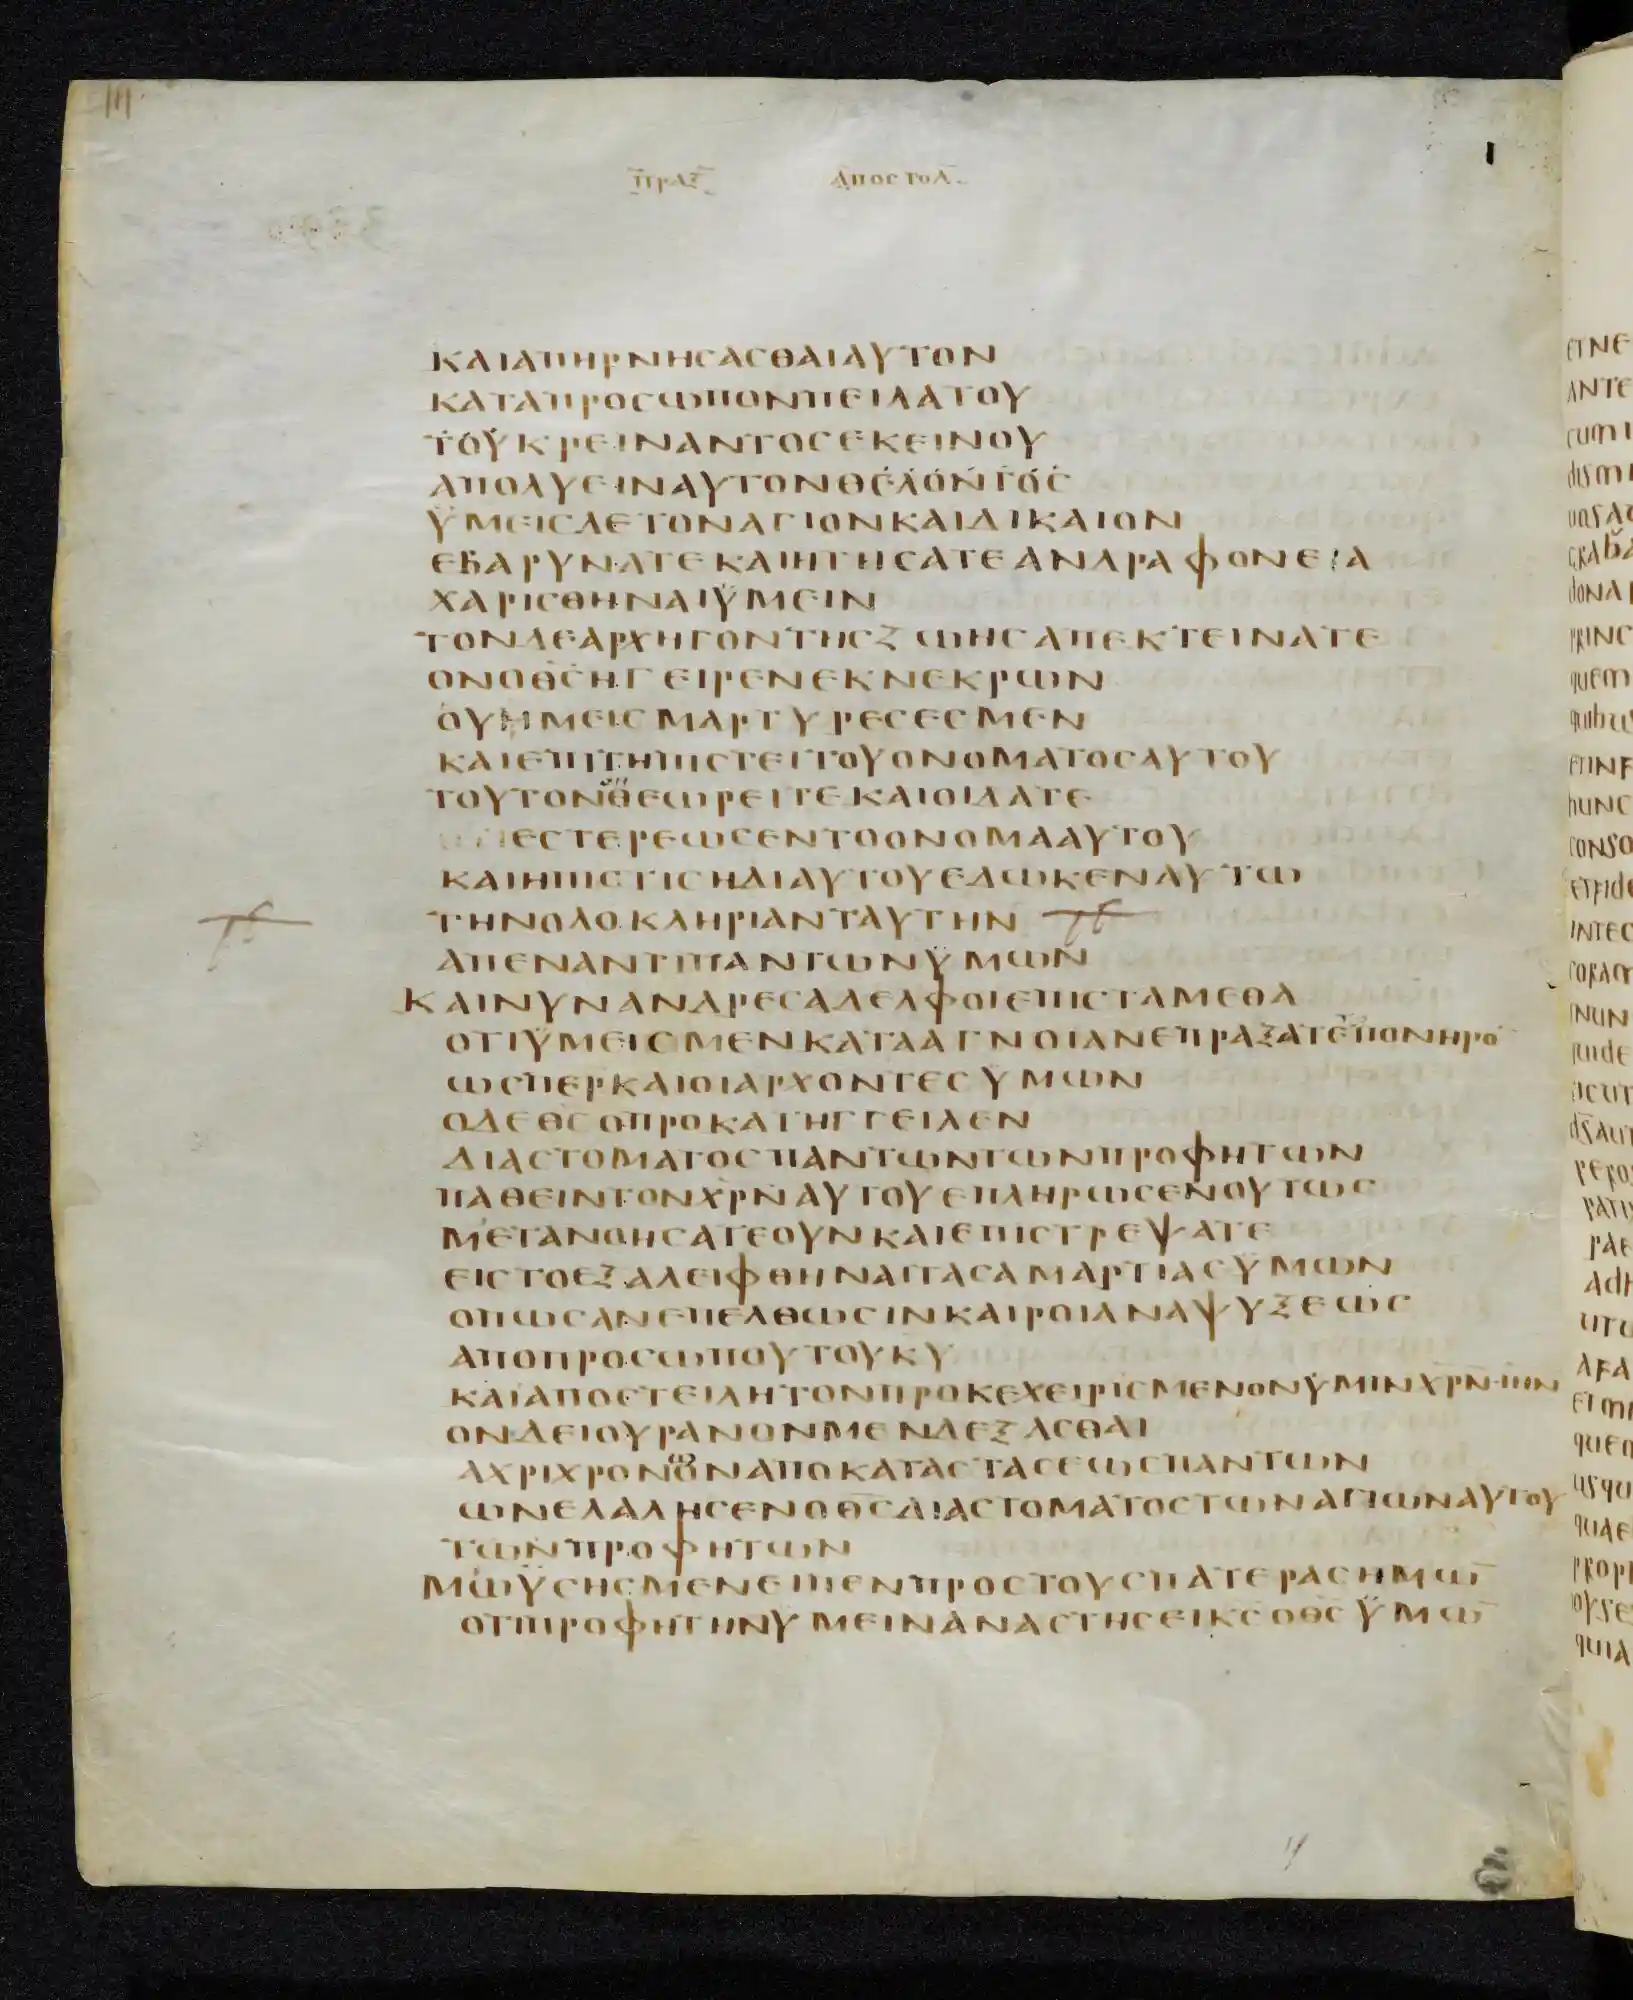 ΠΡΑΞ ΑΠΟΣΤΟΛ
ΚΑΙΑΠΗΡΝΗΣΑΣΘΑΙΑΥΤΟΝ
ΚΑΤΑΠΡΟΣΩΠΟΝΠΕΙΛΑΤΟΥ
ΤΟΥΚΡΕΙΝΑΝΤΟΣΕΚΕΙΝΟΥ
ΑΠΟΛΥΕΙΝΑΥΤΟΝΘΕΛΟΝΤΟΣ
ΫΜΕΙΣΔΕΤΟΝΑΓΙΟΝΚΑΙΔΙΚΑΙΟΝ
ΕΒΑΡΥΝΑΤΕΚΑΙΗΤΗΣΑΤΕΑΝΔΡΑΦΟΝΕΙΑ
ΧΑΡΙΣΘΗΝΑΙΫΜΕΙΝ
ΤΟΝΔΕΑΡΧΗΓΟΝΤΗΣΖΩΗΣΑΠΕΚΤΕΙΝΑΤΕ
ΟΝΟΘΣΗΓΕΙΡΕΝΕΚΝΕΚΡΩΝ
ΟΥΗΜΕΙΣΜΑΡΤΥΡΕΣΕΣΜΕΝ
ΚΑΙΕΠΙΤΗΠΙΣΤΕΙΤΟΥΟΝΟΜΑΤΟΣΑΥΤΟΥ
ΤΟΥΤΟΝΘΕΩΡΕΙΤΕΚΑΙΟΙΔΑΤΕ
ΕΣΤΕΡΕΩΣΕΝΤΟΟΝΟΜΑΑΥΤΟΥ
ΚΑΙΗΠΙΣΤΙΣΗΔΙΑΥΤΟΥΕΔΩΚΕΝΑΥΤΩ
ΤΗΝΟΛΟΚΛΗΡΙΑΝΤΑΥΤΗΝ
ΑΠΕΝΑΝΤΙΠΑΝΤΩΝΫΜΩΝ
ΚΑΙΝΥΝΑΝΔΡΕΣΑΔΕΛΦΟΙΕΠΙΣΤΑΜΕΘΑ
ΟΤΙΫΜΕΙΣΜΕΝΚΑΤΑΑΓΝΟΙΑΝΕΠΡΑΞΑΤΕΠΟΝΗΡΟ
ΩΣΠΕΡΚΑΙΟΙΑΡΧΟΝΤΕΣΫΜΩΝ
ΟΔΕΘΣΟΠΡΟΚΑΤΗΓΓΕΙΛΕΝ
ΔΙΑΣΤΟΜΑΤΟΣΠΑΝΤΩΝΤΩΝΠΡΟΦΗΤΩΝ
ΠΑΘΕΙΝΤΟΝΧΡΝΑΥΤΟΥΕΠΛΗΡΩΣΕΝΟΥΤΩΣ
ΜΕΤΑΝΟΗΣΑΤΕΟΥΝΚΑΙΕΠΙΣΤΡΕΨΑΤΕ
ΕΙΣΤΟΕΞΑΛΕΙΦΘΗΝΑΙΤΑΣΑΜΑΡΤΙΑΣΫΜΩΝ
ΟΠΩΣΑΝΕΠΕΛΘΩΣΙΝΚΑΙΡΟΙΑΝΑΨΥΞΕΩΣ
ΑΠΟΠΡΟΣΩΠΟΥΤΟΥΚΥ
ΚΑΙΑΠΟΣΤΕΙΛΗΤΟΝΠΡΟΚΕΧΕΙΡΙΣΜΕΝΟΝΫΜΙΝΧΡΝΙΗΝ
ΟΝΔΕΙΟΥΡΑΝΟΝΜΕΝΔΕΞΑΣΘΑΙ
ΑΧΡΙΧΡΟΝΩΝΑΠΟΚΑΤΑΣΤΑΣΕΩΣΠΑΝΤΩΝ
ΩΝΕΛΑΛΗΣΕΝΟΘΣΔΙΑΣΤΟΜΑΤΟΣΤΩΝΑΓΙΩΝΑΥΤΟΥ
ΤΩΝΠΡΟΦΗΤΩΝ
ΜΩΫΣΗΣΜΕΝΕΙΠΕΝΠΡΟΣΤΟΥΣΠΑΤΕΡΑΣΗΜΩ̅
ΟΤΙΠΡΟΦΗΤΗΝΥΜΕΙΝΑΝΑΣΤΗΣΕΙΚΣΟΘΣΫΜΩ̅